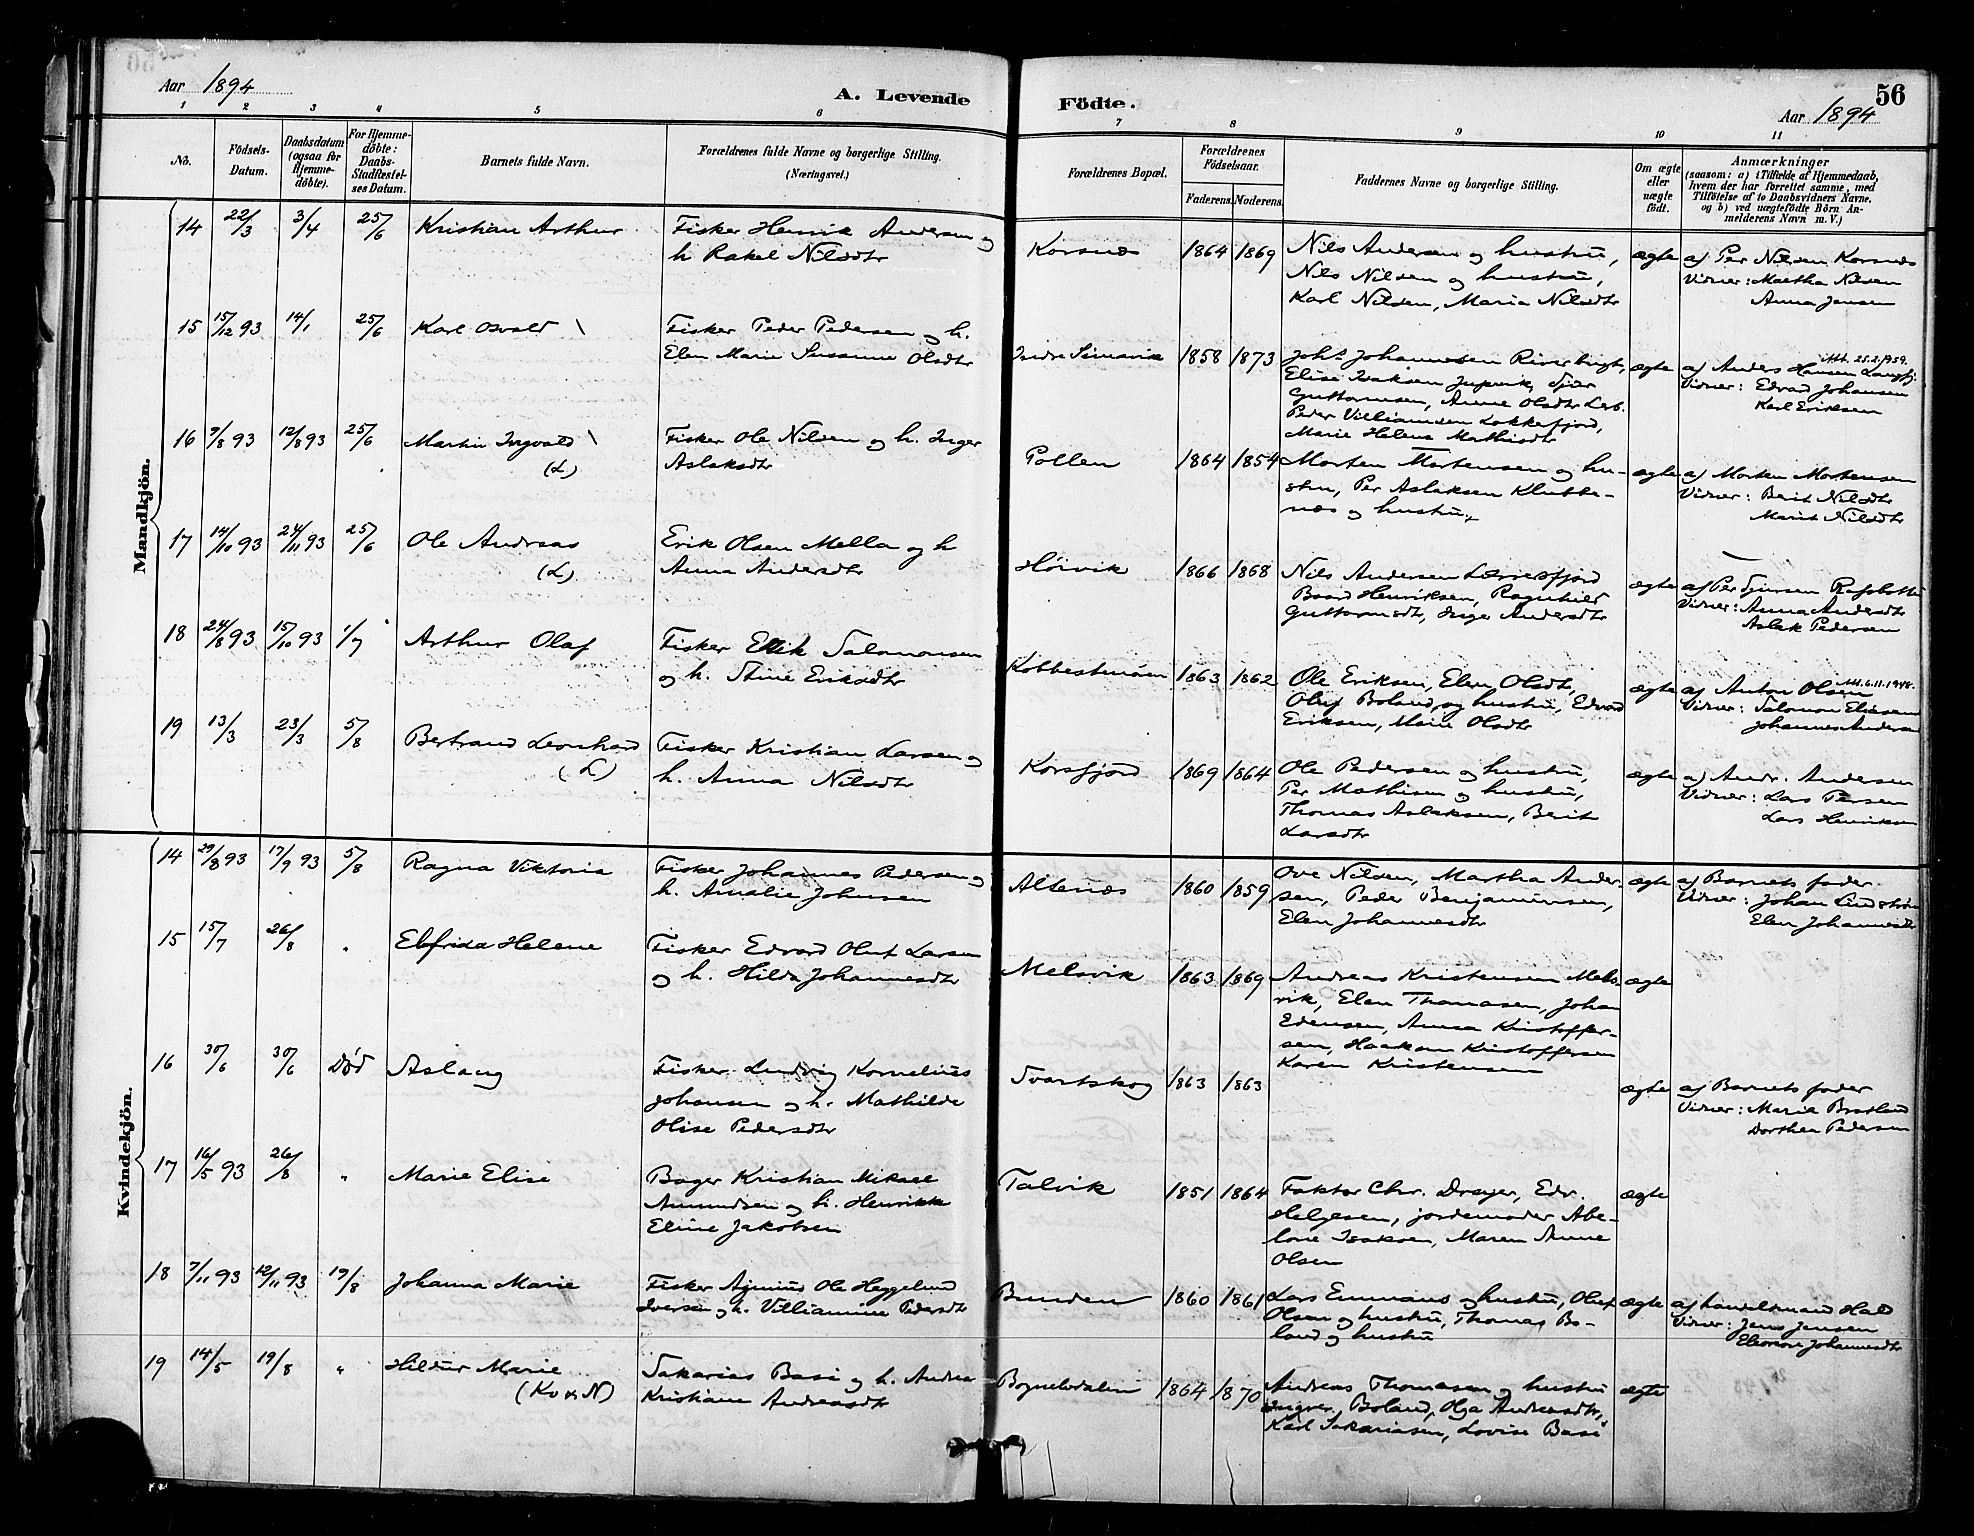 Aar 1894
A. Levende
Födte.
56
Aar 1894
1 2 3 4 5 6 7 8 9 10 11
No.
Födsels-Datum.
Daabsdatum (ogsaa for Hjemmedøbte).
For Hjemmedøbte: Daabs-Stadfæstelses Datum.
Barnets fulde Navn.
Forældrenes fulde Navne og borgerlige Stilling.
(Næringsvei.)
Forældrenes Bopæl.
Forældrenes Födselsaar.
Faderens. Moderens.
Faddernes Navne og borgerlige Stilling.
Om ægte eller uægte födt.
Anmærkninger
(saasom: a) i Tilfælde af Hjemmedaab,
hvem der har forrettet samme, med
Tilföielse af to Daabsvidners Navne,
og b) ved uægtefödte Börn An-
melderens Navn m. V.)
Mandkjön.
14 22/3 3/4 25/6 Kristian Arthur
Fisker Henrik Andersen og
h Rakel Nilsdtr
Korsnæs 1864 1869
Nils Andersen og hustru,
Nils Nilsen og hustru,
Karl Nilsen, Maria Nilsdtr
ægte
af Per Nilsen Korsnæs
Vidner: Martha Nilsen
Anna Jensen
15 15/12 93 14/1 25/6 Karl Osvald \
Fisker Peder Pedersen og h.
Elen Marie Susanne Olsdtr
Indre Simavik 1858 1873
Johs Johannesen Riverbugt,
Elise Isaksen
Guttormsen, Anne Olsdtr
Peder Villiamsen Lokkefjord,
Marie Helene Mathisdtr
ægte
Att. 25.2.1959.
af Anders Hansen Langfj.
Vidner: Edvard Johansen
Karl Eriksen
16 7/8 93 12/8 93 25/6 Martin Ingvald \
(L)
Fisker Ole Nilsen og h. Inger
Aslaksdtr
Pollen 1864 1854
Morten Mortensen og hu-
stru, Per Aslaksen Klubbe-
næs og hustru,
ægte
af Morten Mortensen
Vidner: Berit Nilsdtr
Marit Nilsdtr
17 14/10 93 24/11 93 25/6 Ole Andreas
(L)
Erik Olsen Mella og h
Anna Andersdtr
Höivik 1866 1868
Nils Andersen Lærresfjord
Baard Henriksen, Ragnhild
Guttormsdtr, Inge Andersdtr
ægte
af Per Rafsbotn
Vidner: Anna Andersdtr
Aslak Pedersen
18 24/8 93 15/10 93 1/7 Arthur Olaf
Fisker Erik Salamonsen
og h. Stine Eriksdtr
1863 1862
Ole Eriksen, Elen Olsdtr,
Oluf Boland og hustru, Edvard
Eriksen, Marie Olsdtr
ægte
Att. 6.11.1948.
af Anton Olsen
Vidner: Salomon Eliasen
Johannes Andersen
19 13/3 23/3 5/8 Bertrand Leonhard
(L)
Fisker Kristian Larsen og
h. Anna Nilsdtr
Korsfjord 1869 1864
Ole Pedersen og hustru,
Per Mathisen og hustru,
Thomas Aslaksen, Berit
Larsdtr
ægte
af Andr. Andersen
Vidner: Lars Persen
Lars Henriksen
Kvindekjön.
14 29/8 93 17/9 93 5/8 Ragna Viktoria
Fisker Johannes Pedersen og
h. Amalie Johnsen
Altenæs 1860 1859
Ove Nilsen, Martha Ander-
sen, Peder Benjaminsen,
Elen Johannesdtr
ægte
af Barnets fader.
Vidner: Johan Lindström
Elen Johannesdtr
15 15/7 26/8 " Elfrida Helene
Fisker Edvard Oluf Larsen
og h. Hilda Johannesdtr
Melsvik 1863 1869
Andreas Kristensen Mels-
vik, Elen Thomasen, Johan
Edensen, Anna Kristoffer-
sen, Haakon Kristoffersen
Karen Kristensen
ægte
16 30/6 30/6 Död Aslaug
Fisker Ludvig Kornelius
Johansen og h. Mathilde
Olise Pedersdtr
Svartskog 1863 1863
ægte
af Barnets fader
Vidner: Marie Bratlund
Dorthea Pedersen
17 16/5 93 26/8 " Marie Elise
Bager Kristian Mikael
Amundsen og h. Henrikke
Eline Jakobsen
Talvik 1851 1864
Faktor Chr. Dreyer, Edv.
Helgesen, jordemoder Abe-
lone Isaksen, Maren Anne
Olsen
ægte
18 7/11 93 12/11 93 19/8 Johanna Marie
Fisker Ole Heggelund
Iversen og h. Villiamine Pedersdtr
Bunden 1860 1861
Lars Emmaus og hustru, Oluf
Olsen og hustru, Thomas Bo-
land og hustru
ægte
af handelsmand Hald
Vidner: Jens Jensen
Eleonore Johannesdtr
19 14/5 19/8 " Hildur Marie
(Kv & N)
Sakarias Basi og h. Andrea
Kristiane Andreasdtr
Bognelvdalen 1864 1870
Andreas Thomasen og hustru
Ingver Boland, Olga Andreasdtr,
Karl Sakariasen, Lovise Basi
ægte